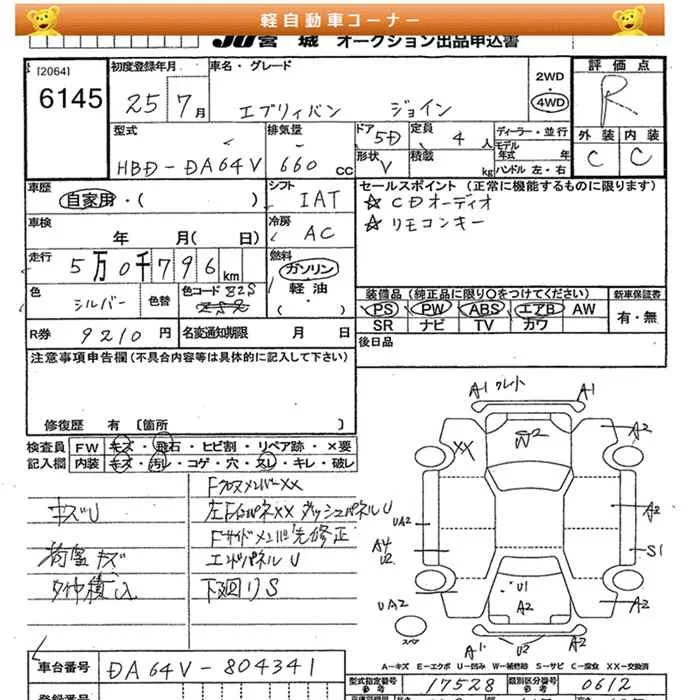 軽自動車コーナー
JU宮城 オークション出品申込書
[2064]
6145
初度登録年月
25年7月
車名・グレード
エブリィバン ジョイン
2WD
4WD
評価点
R
外装 内装
C C
型式
HBD-DA64V
排気量
660 cc
ドア 5D
形状 V
定員 4人
積載 kg
ディーラー・並行
モデル年式 年
ハンドル 左・右
車歴
自家用・( )
シフト
IAT
セールスポイント (正常に機能するものに限ります)
☆ CDオーディオ
☆ リモコンキー
車検
年 月( 日)
冷房
AC
走行
5万0千796km
燃料
ガソリン
軽油
・( )
色
シルバー
色替
色コード 82S
装備品(純正品に限り○をつけてください)
PS PW ABS エアB AW
SR ナビ TV カワ
新車保証書
有・無
R券 9210円
名変通知期限 月 日
後日品
注意事項申告欄(不具合内容等は具体的に記入して下さい)
修復歴 有 [箇所 ]
検査員記入欄
FW キズ・飛石・ヒビ割・リペア跡・×要
内装 キズ・汚レ・コゲ・穴・スレ・キレ・破レ
FクロスメンバーXX
キズU
左FインパネXX ダッシュパネルU
Fサイドメンバ先修正
荷室キズ
エンドパネルU
タイヤ積込
下廻りS
A1 クレト A1
XX
W2
A2
UA2
A2
A4
U2
S1
U1
A2
UA2
A2
スペア
A1 U2 A2
A-キズ E-エクボ U-凹み W-補修跡 S-サビ C-腐食 XX-交換済
車台番号
DA64V-804341
型式指定番号
参考
17528
類別区分番号
参考
0612